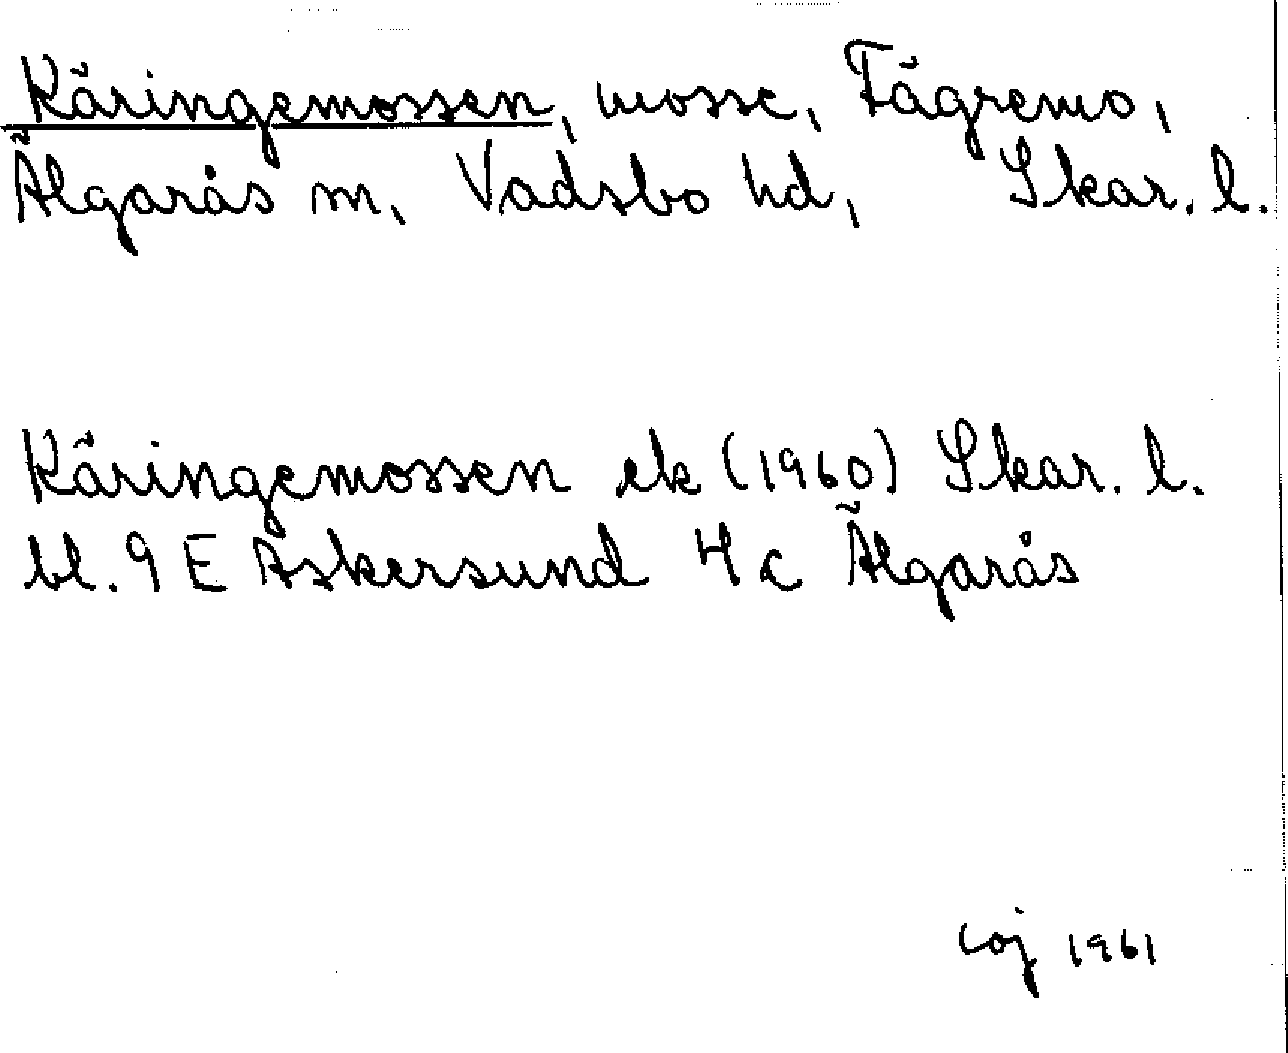 Käringemossen, mosse, Fägremo,
Älgarås sn, Vadsbo hd, Skar. l.
Käringemossen ek (1960) Skar. l.
bl. 9 E Askersund 4 c Älgarås
coj 1961